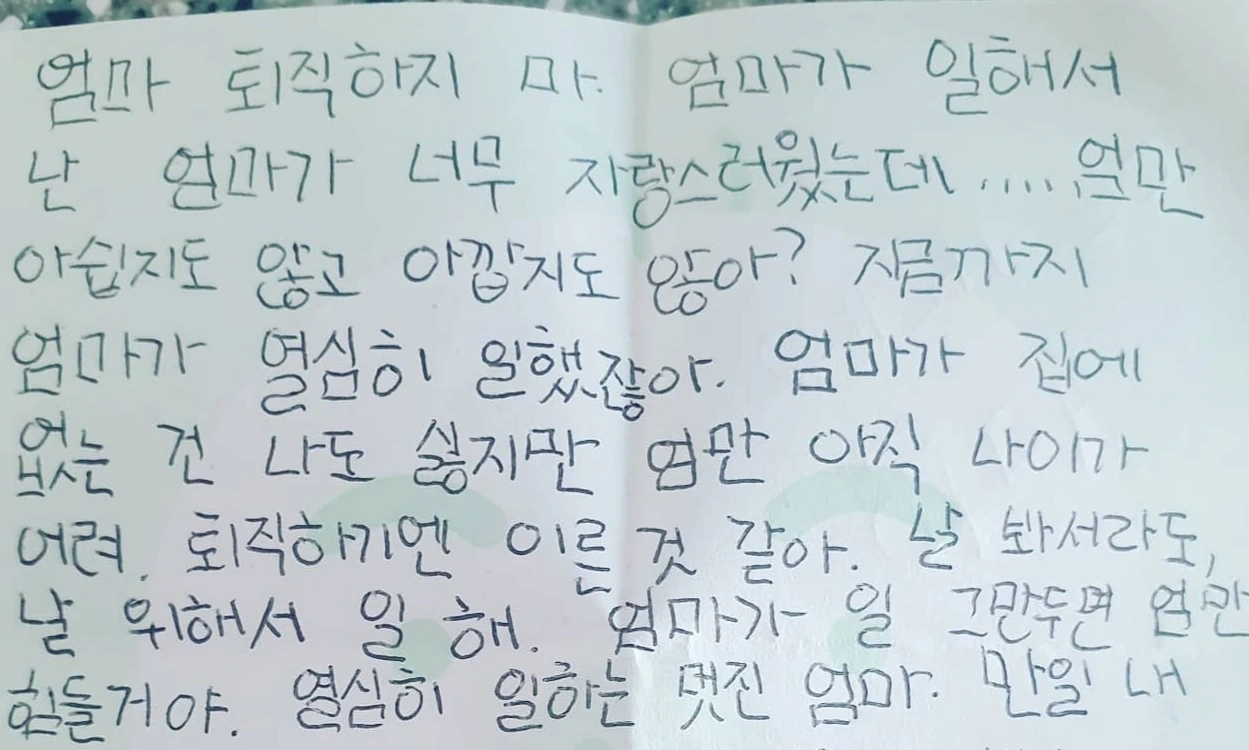 엄마 퇴직하지 마. 엄마가 일해서
난 엄마가 너무 자랑스러웠는데..... 엄만
아쉽지도 않고 아깝지도 않아? 지금까지
엄마가 열심히 일했잖아. 엄마가 집에
없는 건 나도 싫지만 엄만 아직 나이가
어려. 퇴직하기엔 이른 것 같아. 날 봐서라도,
날 위해서 일 해. 엄마가 일 그만두면 엄만
힘들거야. 열심히 일하는 멋진 엄마. 만일 내